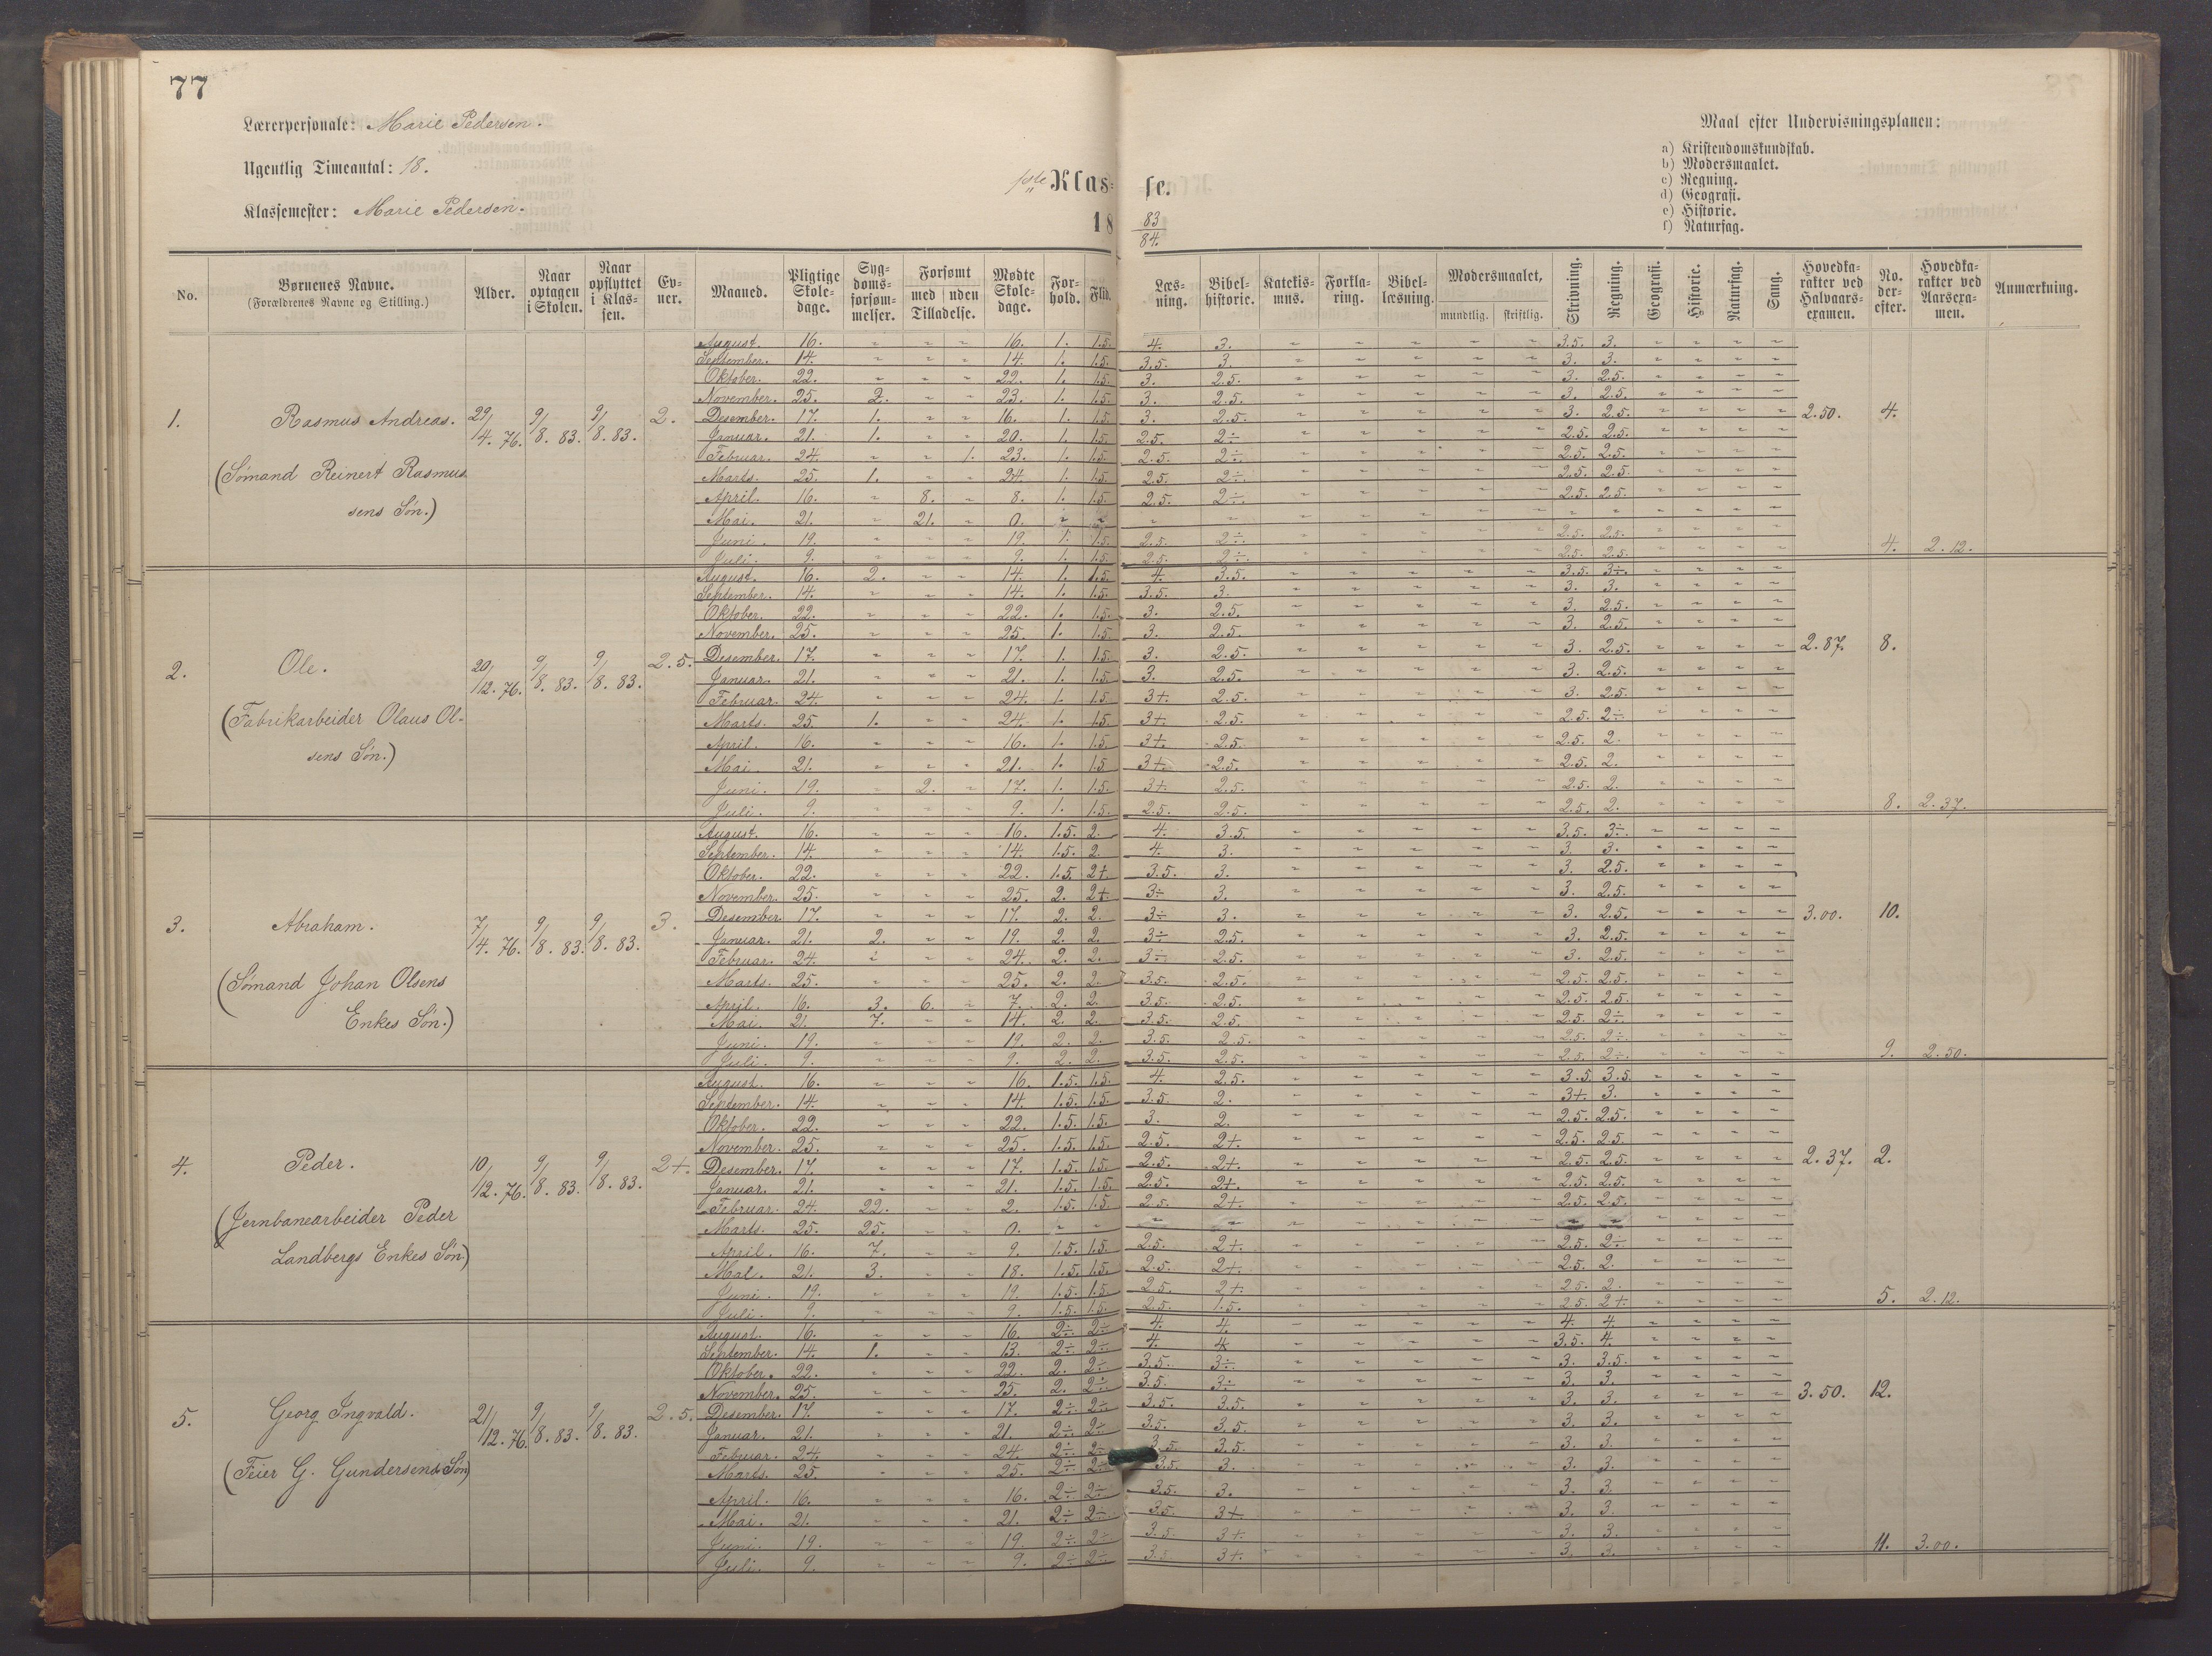 77
Lærerpersonale: Marie Pedersen.
Ugentlig Timeantal: 18.
Klassemester: Marie Pedersen.
1ste Klasse.
1883/84.
Maal efter Undervisningsplanen:
a) Kristendomskundskab.
b) Modersmaalet.
c) Regning.
d) Geografi.
e) Historie.
f) Naturfag.
No. | Børnenes Navne. (Forældrenes Navne og Stilling.) | Alder. | Naar optagen i Skolen. | Naar opflyttet i Klassen. | Evner. | Maaned. | Pligtige Skoledage. | Sygdomsforsømmelser. | Forsømt med Tilladelse. | uden Tilladelse. | Mødte Skoledage. | Forhold. | Flid. | Læsning. | Bibelhistorie. | Katekismus. | Forklaring. | Bibellæsning. | Modersmaalet, mundtlig. | skriftlig. | Skrivning. | Regning. | Geografi. | Historie. | Naturfag. | Sang. | Hovedkarakter ved Halvaarsexamen. | No. derefter. | Hovedkarakter ved Aarsexamen. | Anmærkning.
1. Rasmus Andreas. 29/4. 76. 9/8. 83. 9/8. 83. 2. 2.50. 4.
(Sømand Reinert Rasmus
sens Søn.)
August. 16. " " " 16. 1. 1.5. 4. 3. " " " " " 3.5. 3. " " " "
September. 14. " " " 14. 1. 1.5. 3.5. 3. " " " " " 3. 3. " " " "
Oktober. 22. " " " 22. 1. 1.5. 3. 2.5. " " " " " 3. 2.5. " " " "
November. 25. 2. " " 23. 1. 1.5. 3. 2.5. " " " " " 3. 2.5. " " " "
Desember. 17. 1. " " 16. 1. 1.5. 3. 2.5. " " " " " 3. 2.5. " " " "
Januar. 21. 1. " " 20. 1. 1.5. 2.5. 2÷ " " " " " 2.5. 2.5. " " " "
Februar. 24. " " 1. 23. 1. 1.5. 2.5. 2÷. " " " " " 2.5. 2.5. " " " "
Marts. 25. 1. " " 24. 1. 1.5. 2.5. 2÷. " " " " " 2.5. 2.5. " " " "
April. 16. " 8. " 8. 1. 1.5. 2.5. 2÷. " " " " " 2.5. 2.5. " " " "
Mai. 21. " 21. " 0. " " " " " " " " " " " " " " "
Juni. 19. " " " 19. 1. 1.5. 2.5. 2÷. " " " " " 2.5. 2.5. " " " "
Juli. 9. " " " 9. 1. 1.5. 2.5. 2÷. " " " " " 2.5. 2.5. " " " " 4. 2.12.
2. Ole. 20/12. 76. 9/8. 83. 9/8. 83. 2.5. 2.87. 8.
(Fabrikarbeider Olaus Ol-
sens Søn.)
August. 16. 2. " " 14. 1. 1.5. 4. 3.5. " " " " " 3.5. 3÷. " " " "
September. 14. " " " 14. 1. 1.5. 3.5. 3. " " " " " 3. 3. " " " "
Oktober. 22. " " " 22. 1. 1.5. 3. 2.5. " " " " " 3. 2.5. " " " "
November. 25. " " " 25. 1. 1.5. 3. 2.5. " " " " " 3. 2.5. " " " "
Desember. 17. " " " 17. 1. 1.5. 3. 2.5. " " " " " 3. 2.5. " " " "
Januar. 21. " " " 21. 1. 1.5. 3. 2.5. " " " " " 3. 2.5. " " " "
Februar. 24. " " " 24. 1. 1.5. 3+. 2.5. " " " " " 3. 2.5. " " " "
Marts. 25. 1. " " 24. 1. 1.5. 3+. 2.5. " " " " " 2.5. 2÷. " " " "
April. 16. " " " 16. 1. 1.5. 3+. 2.5. " " " " " 2.5. 2. " " " "
Mai. 21. " " " 21. 1. 1.5 3+. 2.5. " " " " " 2.5. 2. " " " "
Juni. 19. " 2. " 17. 1. 1.5. 3+. 2.5. " " " " " 2.5. 2. " " " "
Juli. 9. " " " 9. 1. 1.5. 2.5. 2.5. " " " " " 2.5. 2. " " " " 8. 2.37.
3. Abraham. 7/4. 76. 9/8. 83. 9/8. 83. 3. 3.00. 10.
(Sømand Johan Olsens
Enkes Søn.)
August. 16. " " " 16. 1.5. 2. 4. 3.5. " " " " " 3.5. 3÷. " " " "
September. 14. " " " 14. 1.5. 2. 4. 3. " " " " " 3. 3. " " " "
Oktober. 22. " " " 22. 1.5. 2+. 3.5. 3. " " " " " 3. 2.5. " " " "
November. 25. " " " 25. 2. 2+. 3÷ 3. " " " " " 3. 2.5. " " " "
Desember. 17. " " " 17. 2. 2. 3÷ 3. " " " " " 3. 2.5. " " " "
Januar. 21. 2. " " 19. 2. 2. 3÷ 2.5. " " " " " 3. 2.5. " " " "
Februar. 24. " " " 24. 2. 2. 3÷. 2.5. " " " " " 3. 2.5. " " " "
Marts. 25. " " " 25. 2. 2. 3.5. 2.5. " " " " " 2.5. 2.5. " " " "
April. 16. 3. 6. " 7. 2. 2. 3.5. 2.5. " " " " " 2.5. 2.5. " " " "
Mai. 21. 7. " " 14. 2. 2. 3.5. 2.5. " " " " " 2.5. 2÷. " " " "
Juni. 19. " " " 19. 2. 2. 3.5. 2.5. " " " " " 2.5. 2÷. " " " "
Juli. 9. " " " 9. 2. 2. 3.5. 2.5. " " " " " 2.5. 2÷. " " " " 9. 2.50.
4. Peder. 10/12. 76. 9/8. 83. 9/8. 83. 2+. 2.37. 2.
(Jernbanearbeider Peder
Landbergs Enkes Søn)
August. 16. " " " 16. 1.5. 1.5. 4. 2.5. " " " " " 3.5. 3.5. " " " "
September. 14. " " " 14. 1.5. 1.5. 3.5. 2. " " " " " 3+. 3. " " " "
Oktober. 22. " " " 22. 1.5. 1.5. 3. 2. " " " " " 2.5. 2.5. " " " "
November. 25. " " " 25. 1.5. 1.5. 2.5. 2+. " " " " " 2.5. 2.5. " " " "
Desember. 17. " " " 17. 1.5. 1.5. 2.5. 2+. " " " " " 2.5. 2.5. " " " "
Januar. 21. " " " 21. 1.5. 1.5. 2.5. 2+. " " " " " 2.5. 2.5. " " " "
Februar. 24. 22. " " 2. 1.5. 1.5. 2.5. 2+. " " " " " 2.5. 2.5. " " " "
Marts. 25. 25. " " 0. " " " " " " " " " " " " " " "
April. 16. 7. " " 9. 1.5. 1.5. 2.5. 2+. " " " " " 2.5. 2÷ " " " "
Mai. 21. 3. " " 18. 1.5. 1.5. 2.5. 2+. " " " " " 2.5. 2. " " " "
Juni. 19. " " " 19. 1.5. 1.5. 2.5. 2+. " " " " " 2.5. 2. " " " "
Juli. 9. " " " 9. 1.5. 1.5. 2.5. 1.5. " " " " " 2.5. 2+. " " " " 5. 2.12.
5. Georg Ingvald. 21/12. 76. 9/8. 83. 9/8. 83. 2.5. 3.50. 12.
(Feier G. Gundersens Søn)
August. 16. " " " 16. 2÷. 2÷ 4. 4. " " " " " 4. 4. " " " "
September. 14. 1. " " 13. 2÷ 2÷ 4. 4 " " " " " 3.5. 4. " " " "
Oktober. 22. " " " 22. 2. 2÷. 3.5. 3÷. " " " " " 3. 3.5. " " " "
November. 25. " " " 25. 2. 2÷ 3.5. 3÷ " " " " " 3. 3. " " " "
Desember. 17. " " " 17. 2÷ 2÷ 3.5. 3.5. " " " " " 3. 3. " " " "
Januar. 21. " " " 21. 2÷ 2÷ 3.5. 3.5. " " " " " 3. 3. " " " "
Februar. 24. " " " 24. 2÷. 2÷ 3.5. 3.5. " " " " " 3. 3. " " " "
Marts. 25. " " " 25. 2÷ 2÷ 3.5. 3. " " " " " 3. 3. " " " "
April. 16. " " " 16. 2÷ 2÷ 3.5. 3. " " " " " 3. 3. " " " "
Mai. 21. " " " 21. 2÷ 2÷. 3.5. 3+ " " " " " 3. 3. " " " "
Juni. 19. " " " 19. 2÷ 2÷ 3.5. 3+. " " " " " 3. 3. " " " "
Juli. 9. " " " 9. 2÷ 2÷ 3.5. 3+. " " " " " 3. 3. " " " " 11. 3.00.